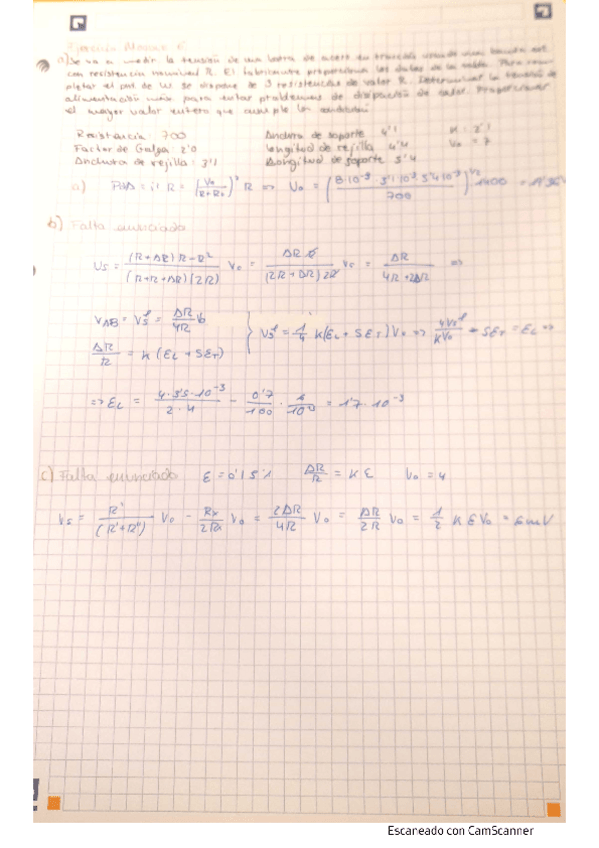 a) Se va a medir la tensión de una barra de acero en tracción usando una
con resistencia nominal R. El fabricante proporciona los datos de la tabla. Para com-
pletar el pnt de W se dispone de 3 resistencias de valor R. Determinar la tensión de
alimentación máx. para evitar problemas de disipación de calor. Proporcionar
el mayor valor entero que cumple la condición
Resistencia: 700 Anchura de soporte 4'1 K: 2'1
Factor de Galga: 2'0 longitud de rejilla 4'4 V0 = 7
Anchura de rejilla: 3'1 Longitud de soporte 5'4
a) PΔD = i² R = (V0/(R+R0))² R ⇒ V0 = (8·10⁻³ · 3'1·10⁻³ · 5'4·10⁻³ / 700)^1/2 1400 =
b) Falta enunciado
Vs = (R+ΔR)R-R² / (R+R+ΔR)(2R) V0 = ΔR R / (2R+ΔR)2R V0 = ΔR / 4R+2ΔR ⇒
VAB = Vs = ΔR/4R V0
ΔR/R = K (EL + SET) } Vs = 1/4 K(EL + SET) V0 ⇒ 4Vs/KV0 - SET = EL ⇒
⇒ EL = 4·3'5·10⁻³ / 2·4 - 0'7/100 · 1/100 = 1'7·10⁻³
c) Falta enunciado E = 0'15% ΔR/R = K E V0 = 4
Vs = R' / (R'+R'') V0 - Rx/2R V0 = 2ΔR/4R V0 = ΔR/2R V0 = 1/2 K E V0 = 6mV
Escaneado con CamScanner